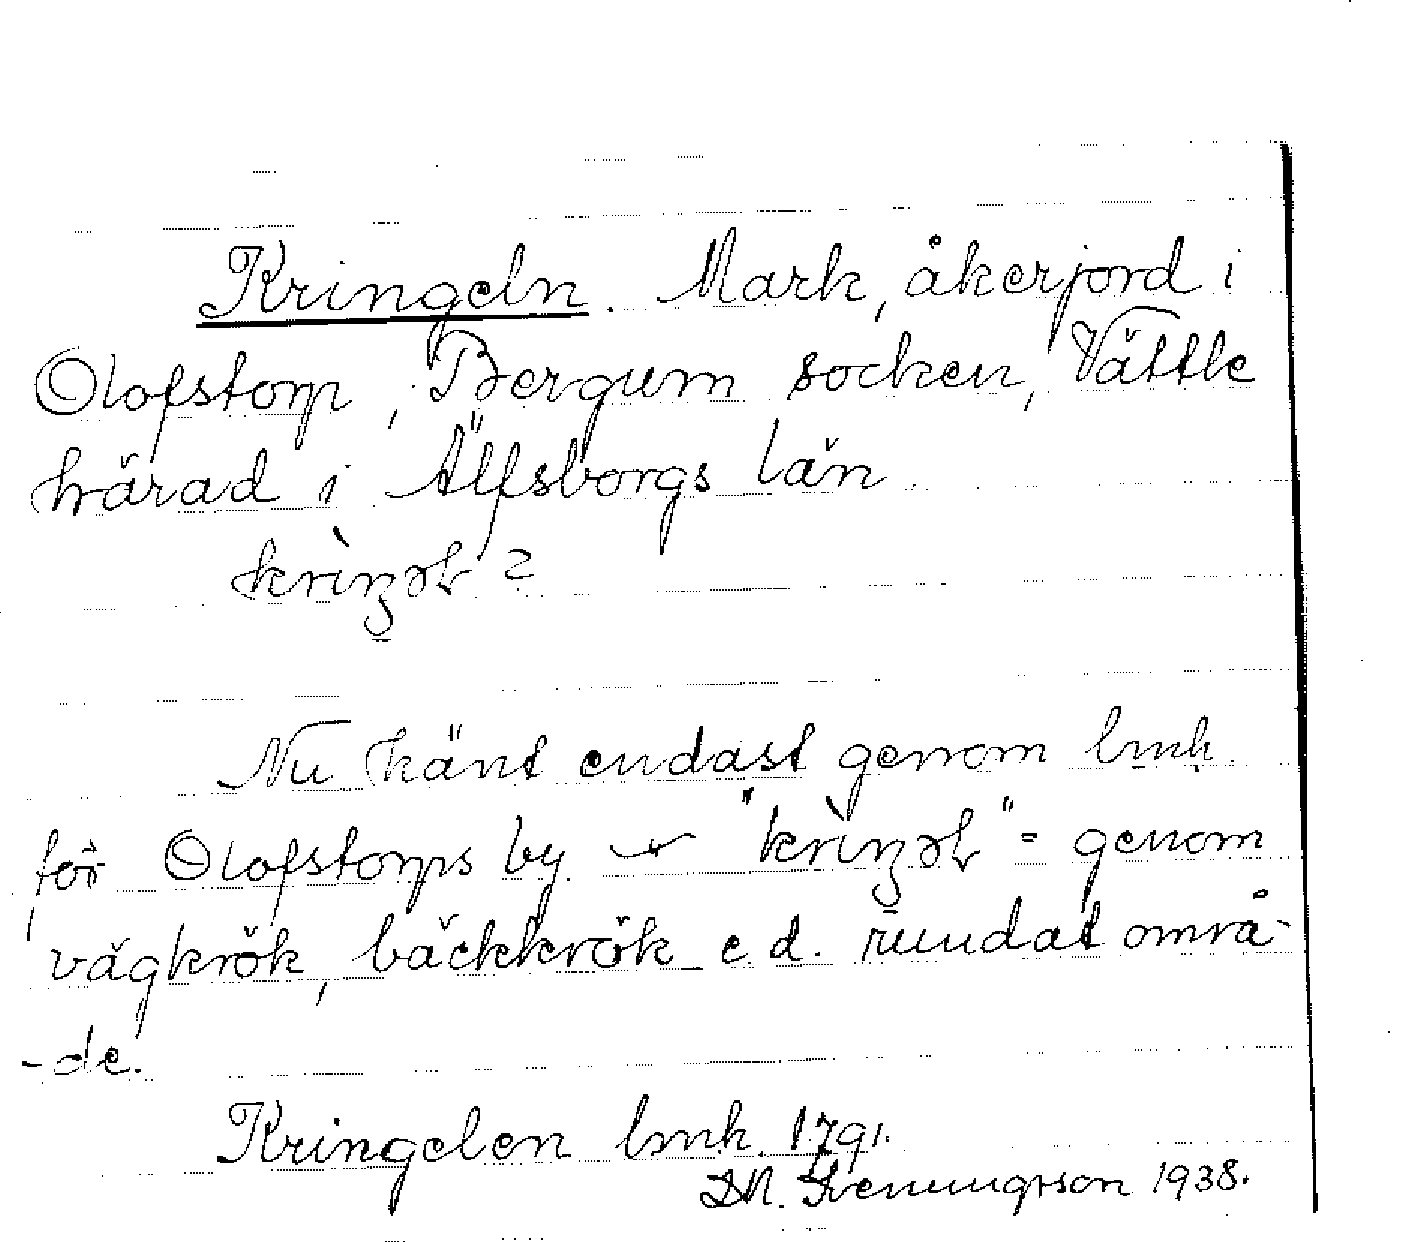 Kringeln. Mark, åkerjord i
Olofstorp, Bergum socken, Vättle
härad i Älfsborgs län.
krìŋəɫ ?
Nu känt endast genom lmk
för Olofstorps by "krìŋəɫ" = genom
vägkrök, bäckkrök e d. rundat områ-
-de.
Kringelen lmk. 1791.
1938.